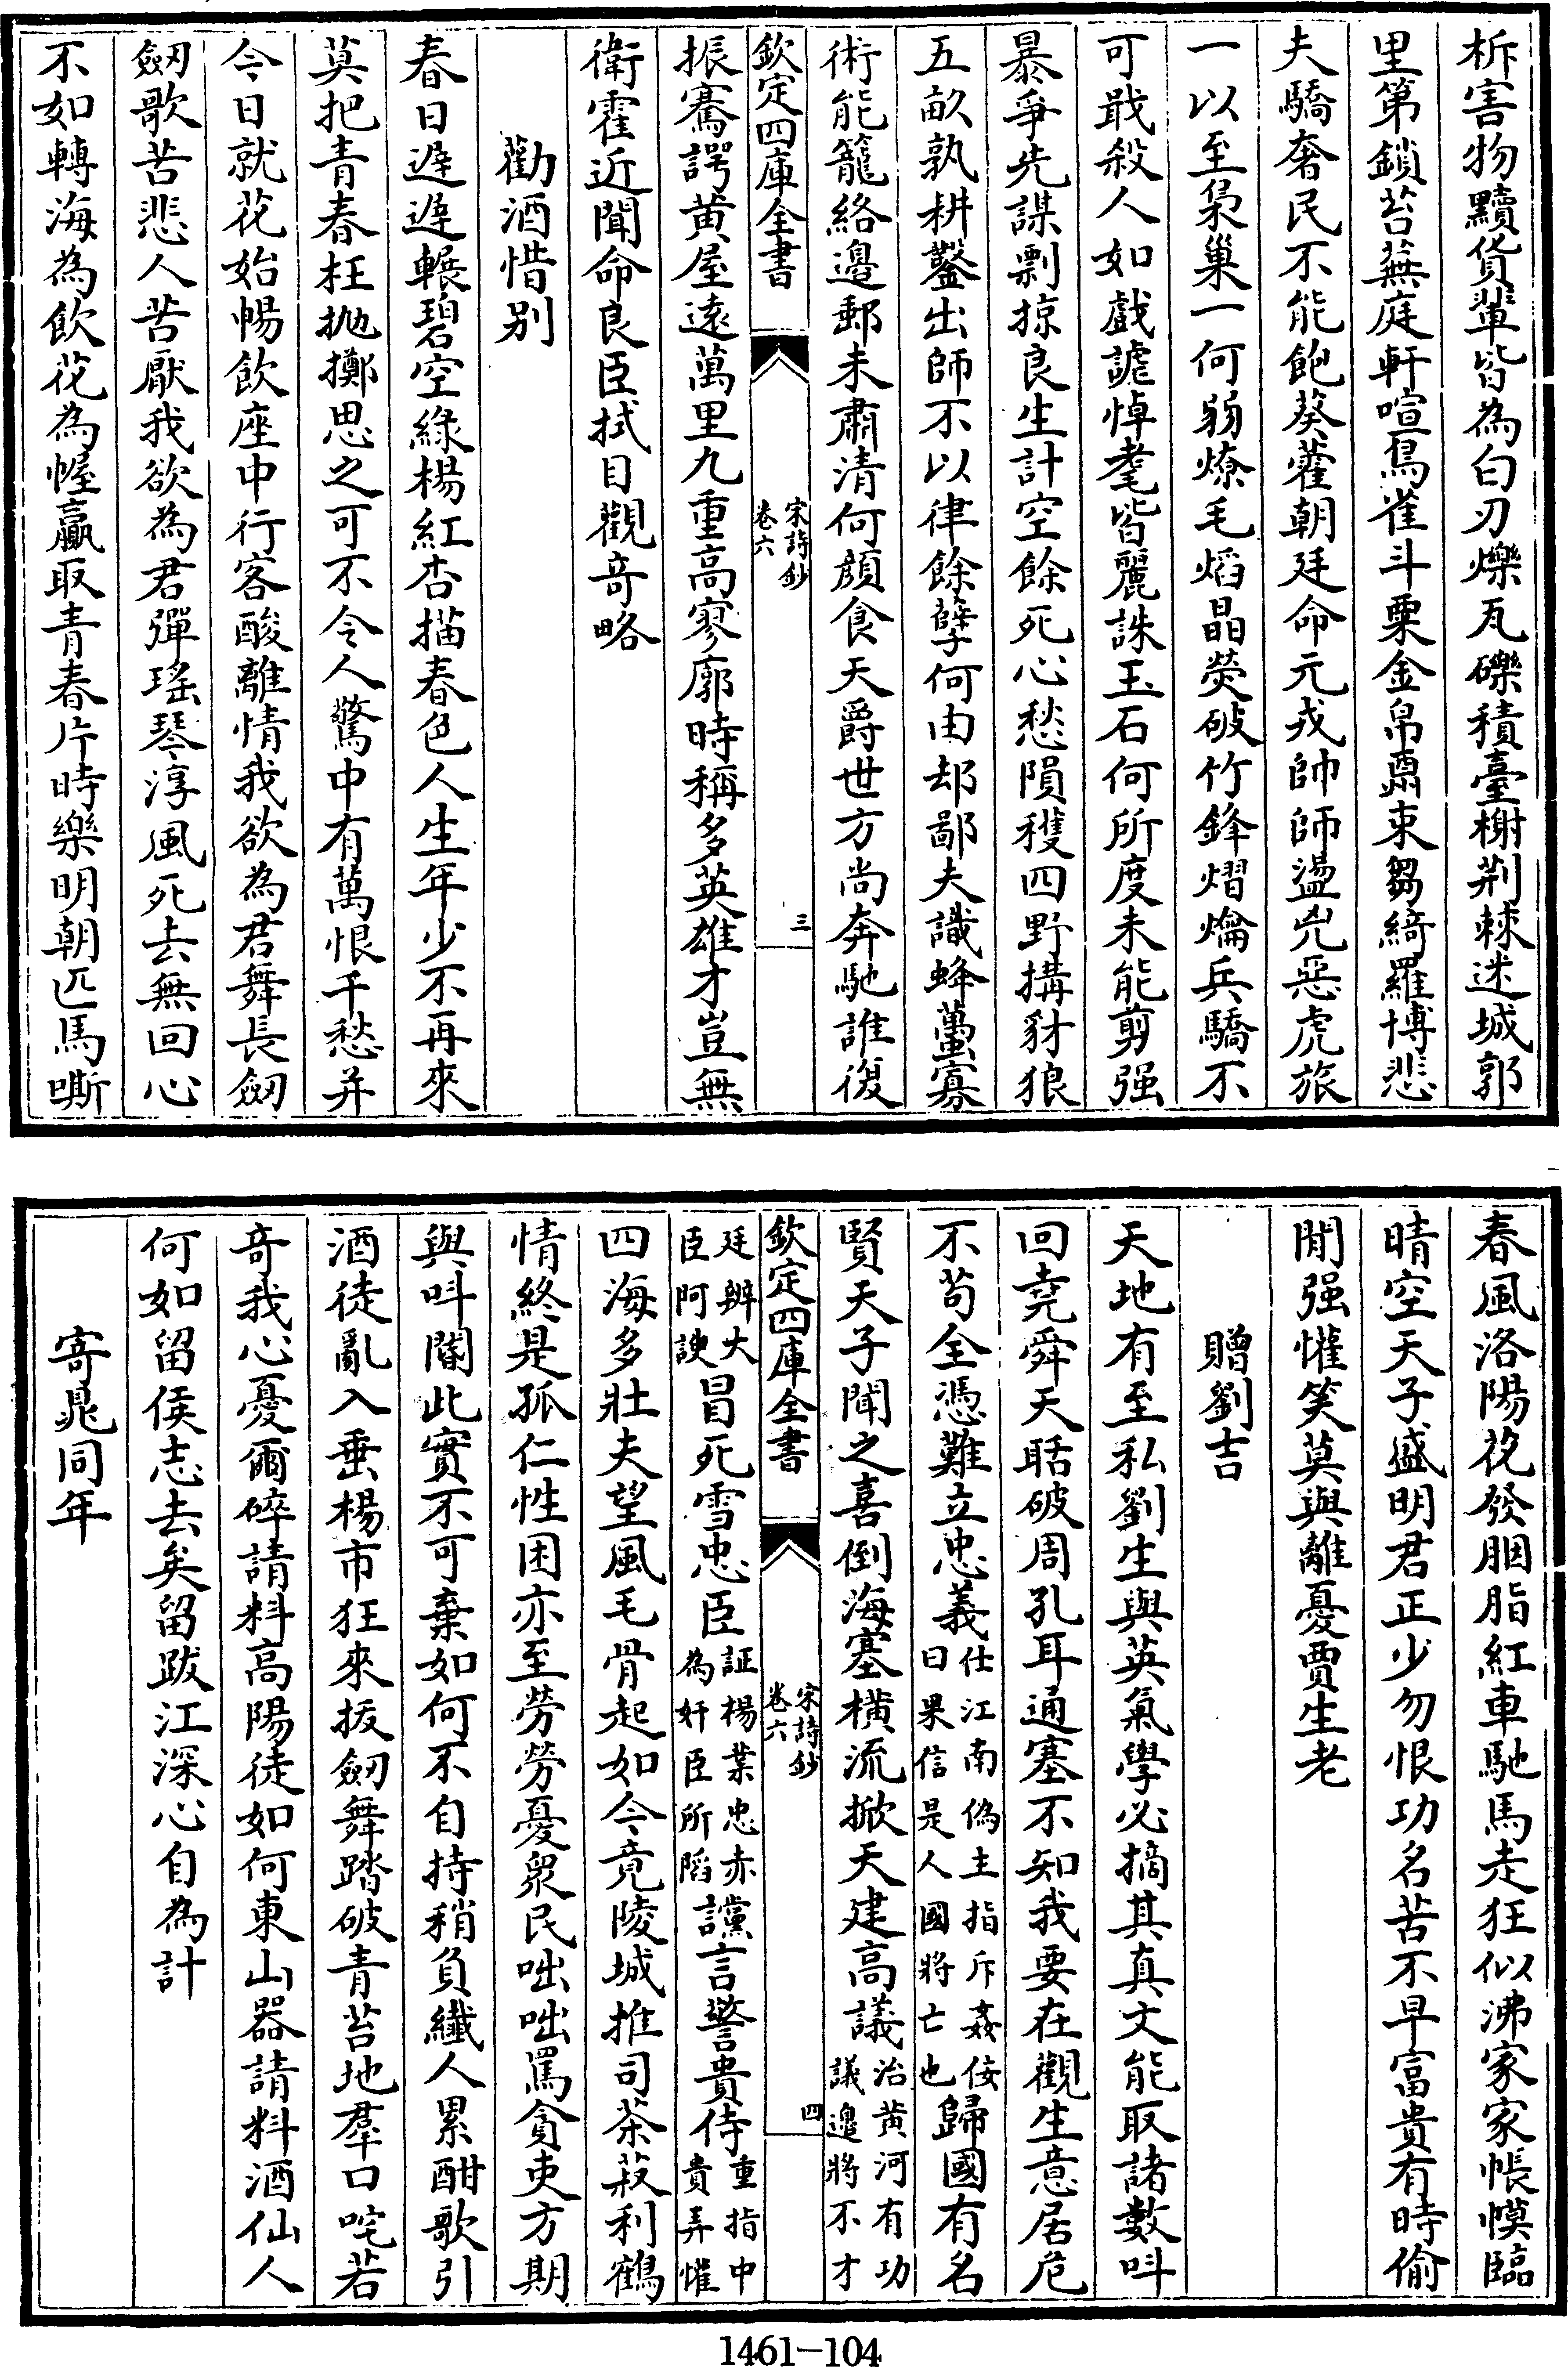 柝害物黷貨輩皆為白刃爍瓦礫積臺榭荆棘迷城郭
里第鎖苔蕪庭軒喧鳥雀斗粟金帛鬻束芻綺羅博悲
夫驕奢民不能飽葵藿朝廷命元戎帥師盪兇惡虎旅
一以至梟巢一何弱燎毛焰晶熒破竹鋒熠爚兵驕不
可戢殺人如戲謔悼耄皆麗誅玉石何所度未能剪强
暴爭先謀剽掠良生計空餘死心愁隕穫四野搆豺狼
五畝孰耕鑿出師不以律餘孽何由却鄙夫識蜂蠆寡
術能籠絡邉郵未肅清何顔食天爵世方尚奔馳誰復
欽定四庫全書
宋詩鈔
卷六
三
振騫諤黄屋遠萬里九重高寥廓時稱多英雄才豈無
衛霍近聞命良臣拭目觀竒略
勸酒惜别
春日遲遲輾碧空綠楊紅杏描春色人生年少不再來
莫把青春枉抛擲思之可不令人驚中有萬恨千愁并
今日就花始暢飲座中行客酸離情我欲為君舞長劔
劔歌苦悲人苦厭我欲為君彈瑶琴淳風死去無回心
不如轉海為飲花為幄贏取青春片時樂明朝匹馬嘶
春風洛陽花發胭脂紅車馳馬走狂似沸家家帳幙臨
晴空天子盛明君正少勿恨功名苦不早富貴有時偷
閒强懽笑莫與離憂賈生老
贈劉吉
天地有至私劉生與英氣學必摘其真文能取諸數呌
回堯舜天聒破周孔耳通塞不知我要在觀生意居危
不苟全憑難立忠義仕江南偽主指斥姦佞
曰果信是人國將亡也歸國有名
賢天子聞之喜倒海塞横流掀天建高議治黄河有功
議邉將不才
欽定四庫全書
宋詩鈔
卷六
四
廷辨大
臣阿諛冒死雪忠臣証楊業忠赤
為奸臣所䧟讜言警貴侍重指中
貴弄懽
四海多壯夫望風毛骨起如今竟陵城推司茶菽利鶴
情終是孤仁性困亦至勞勞憂衆民咄咄罵貪吏方期
與呌閽此實不可棄如何不自持稍負纖人累酣歌引
酒徒亂入垂楊市狂來拔劔舞踏破青苔地羣口咤若
竒我心憂爾碎請料高陽徒如何東山器請料酒仙人
何如留侯志去矣留跋江深心自為計
寄晁同年
1461-104